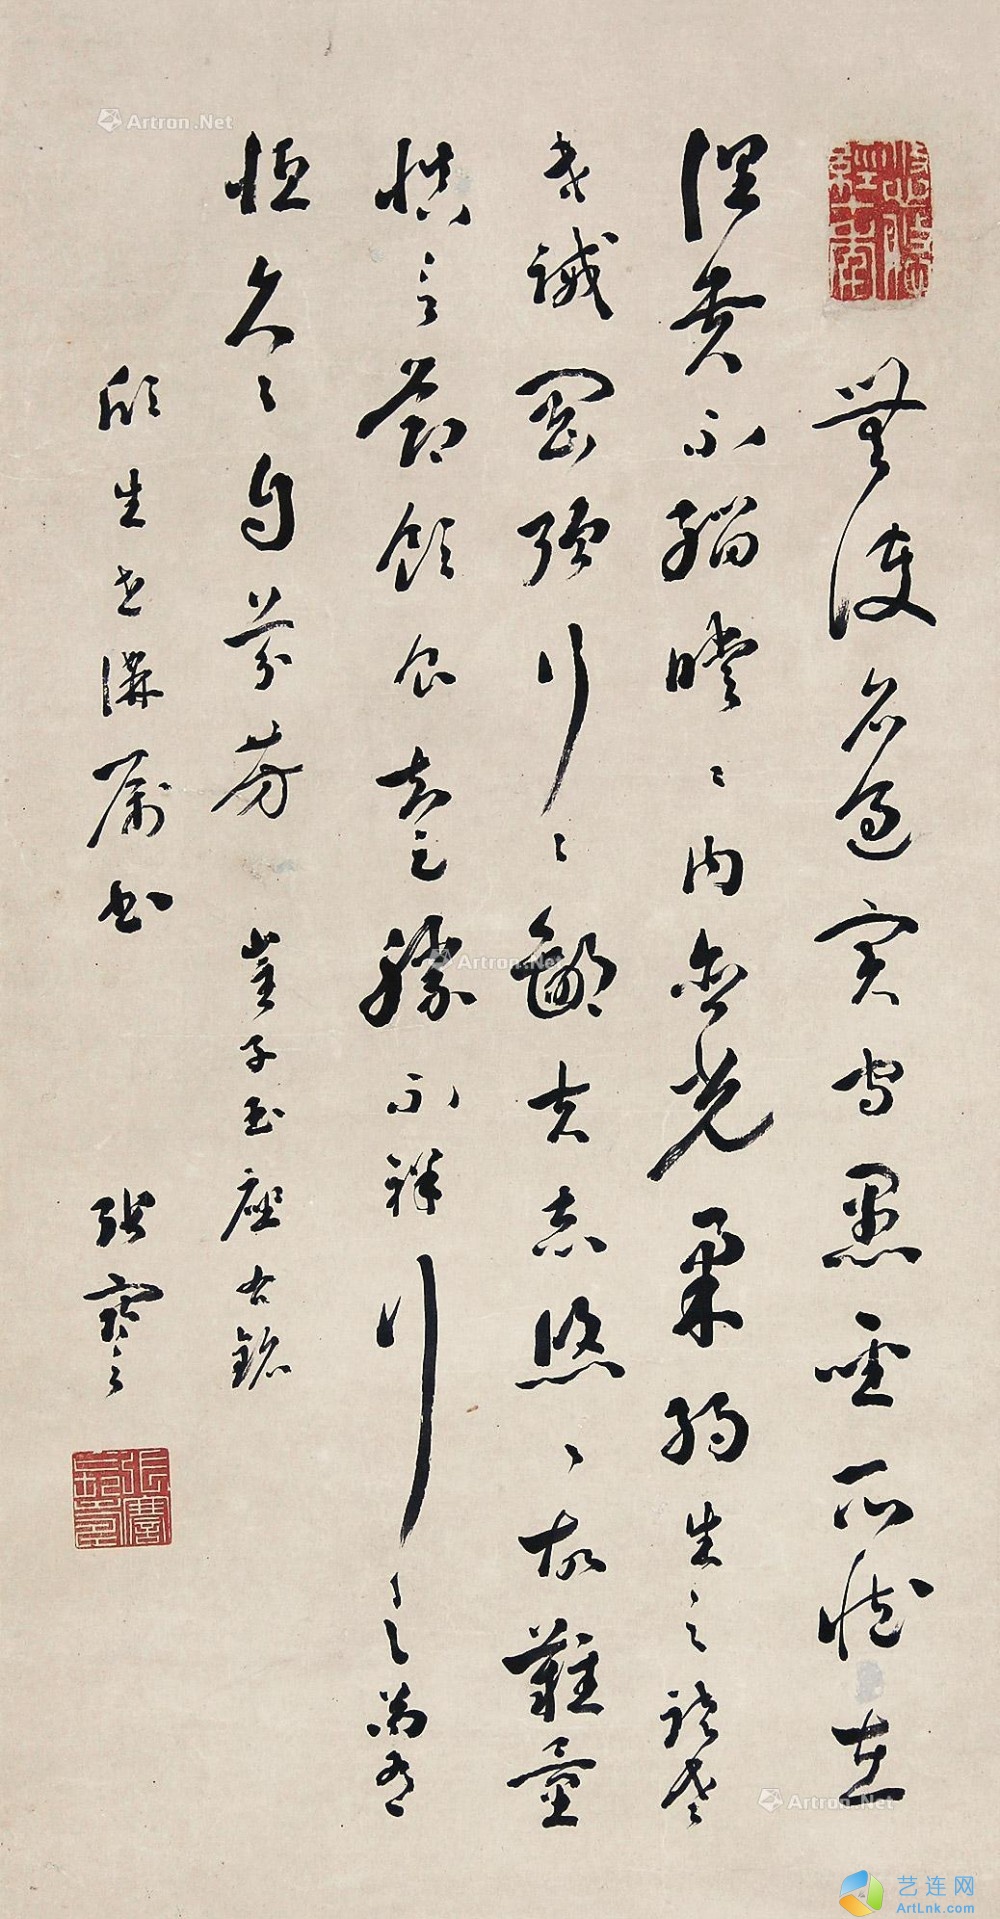 無使名過實守愚聖所臧在
涅貴不緇曖々內含光柔弱生之徒老
氏誡剛強行々鄙夫志悠々故難量
慎言節飲食知足勝不祥行之苟有
恒久々自芬芳 崔子玉座右銘
欣生世講屬書 張謇
Artron.Net
Artron.Net
Artron.Net
艺连网
ArtLnk.com